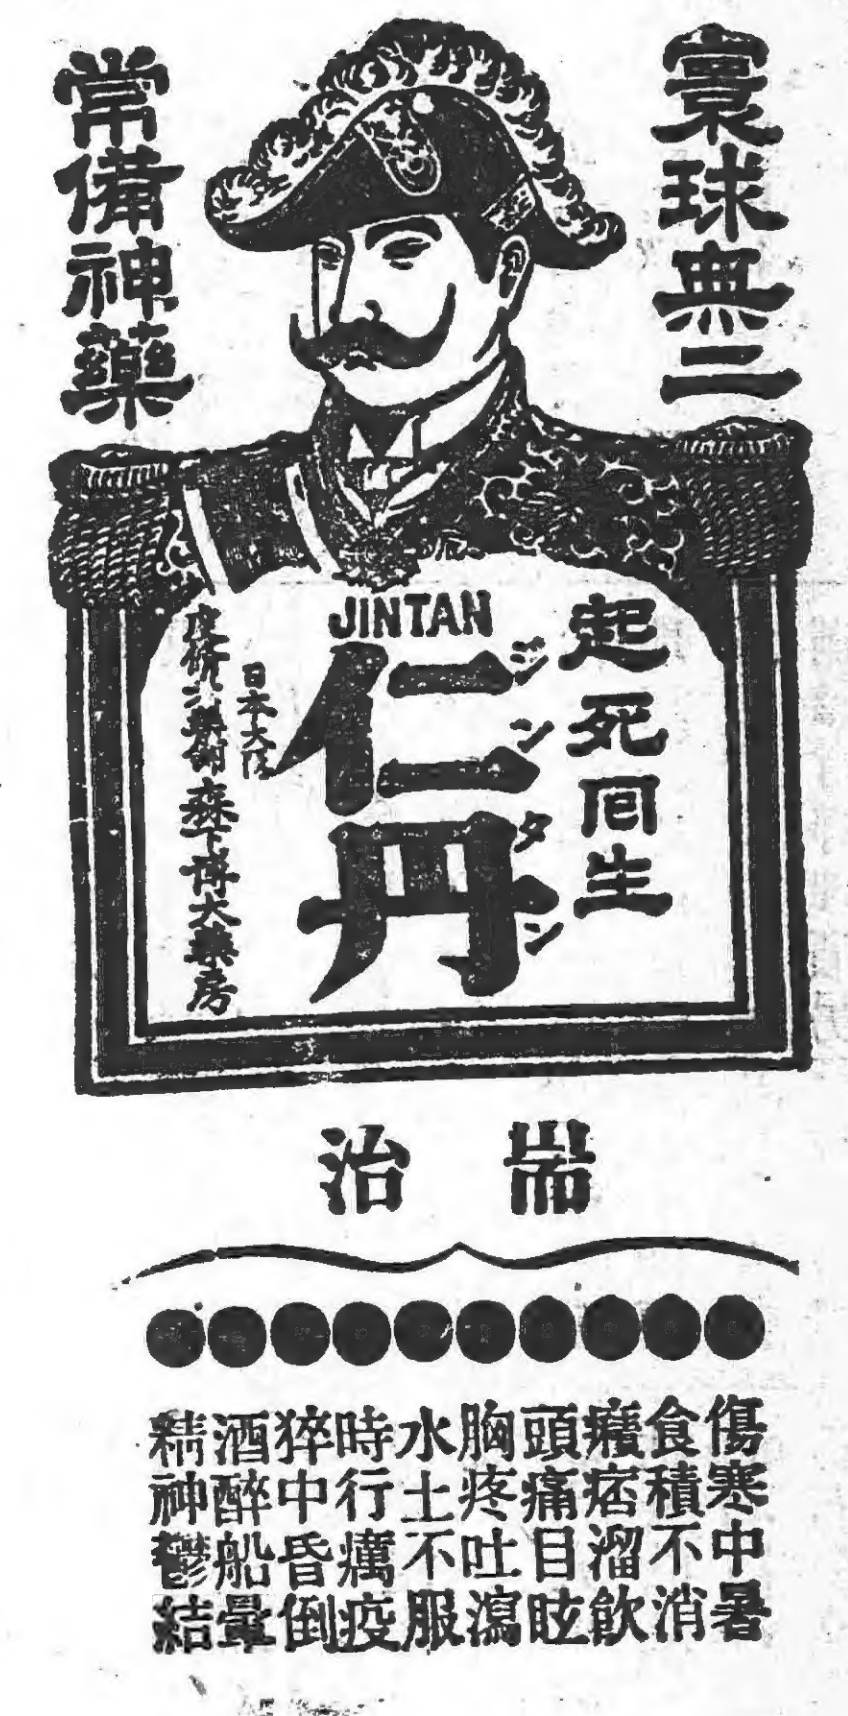 寰球無二
常備神藥
JINTAN
起死囘生
ジンタン
仁丹
日本大阪
森下博大藥房
耑治
傷寒中暑
食積不消
癪痞溜飲
頭痛目眩
胸疼吐瀉
水土不服
時行癘疫
猝中昏倒
酒醉船暈
精神鬱結